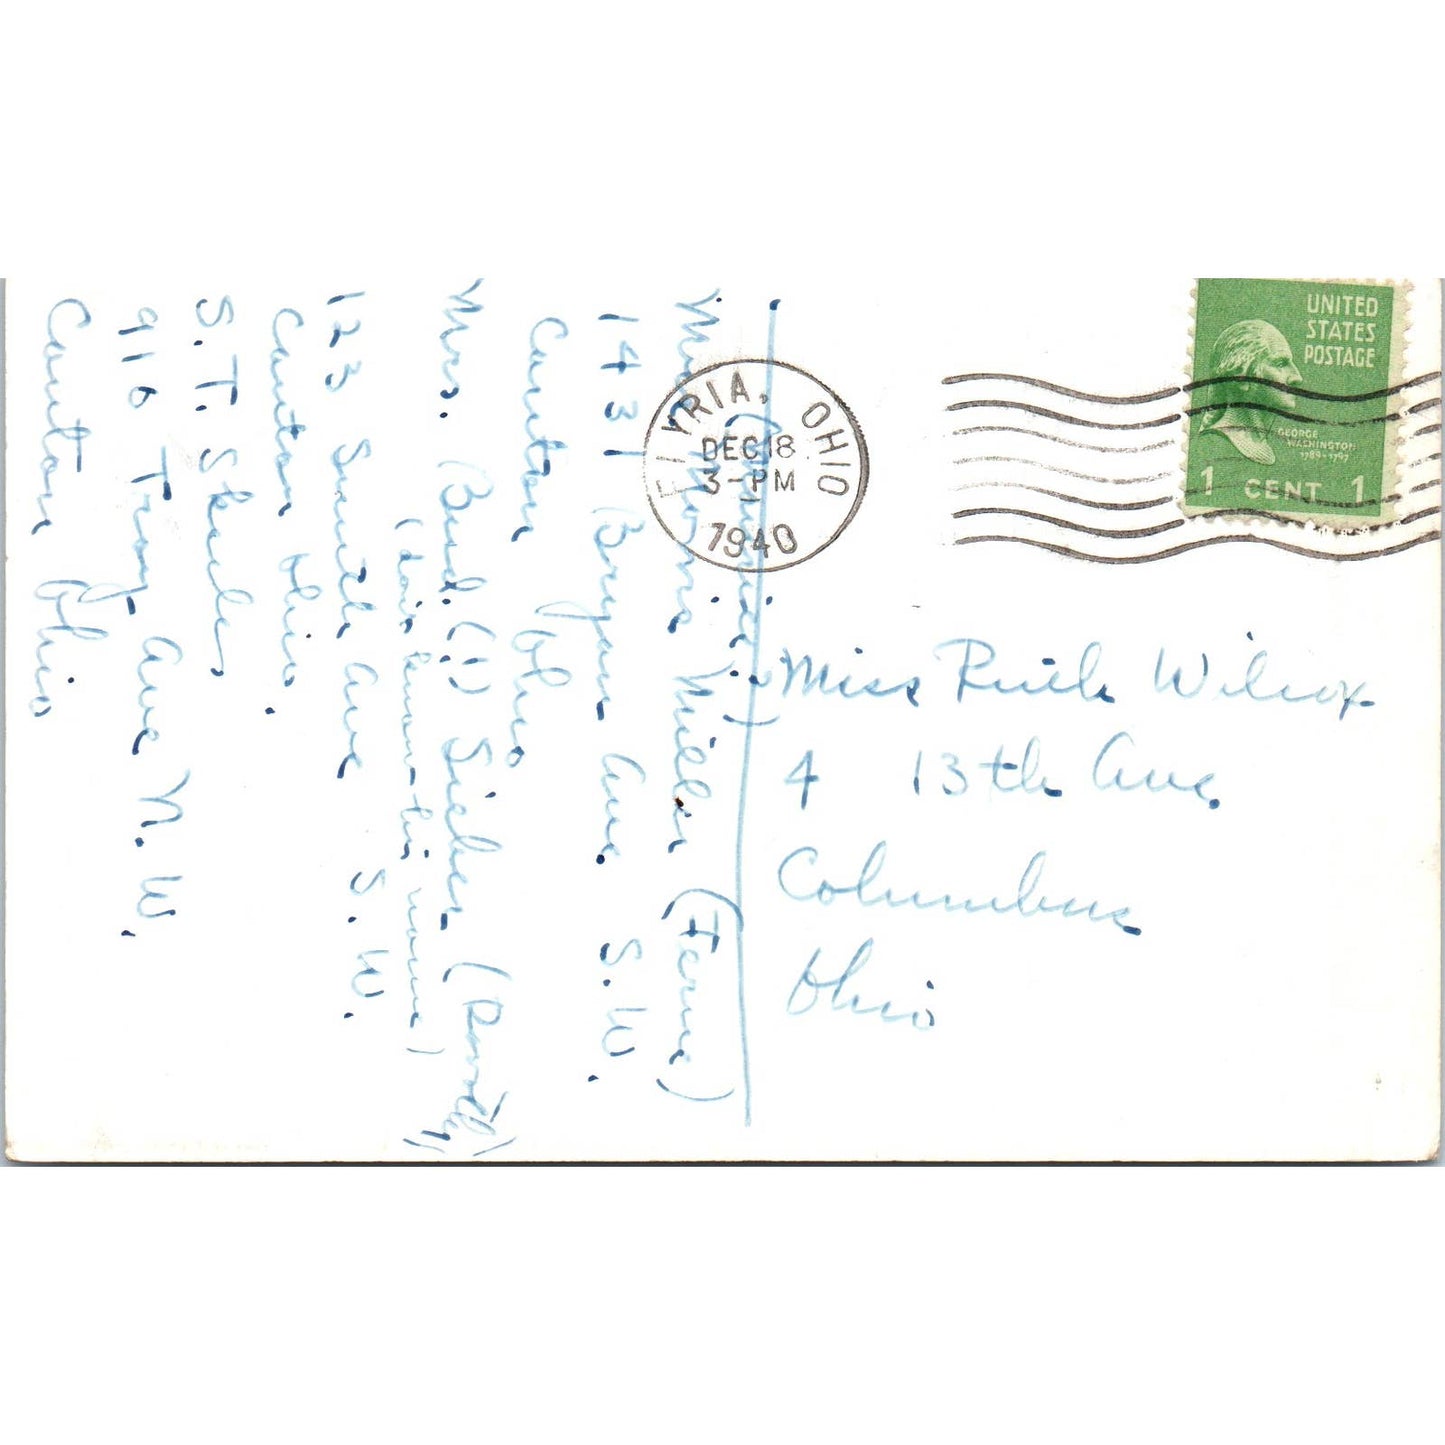 Mrs. Morris Miller (Ferne)
1431 Bryan Ave. S.W.
Canton Ohio
Mrs. Bud. (!) Sieber (Dorothy)
(don't know his name)
123 Smith Ave S.W.
Canton Ohio.
S. T. Skeeles
916 Troy Ave N.W.
Canton Ohio
ELYRIA, OHIO
DEC 18
3-PM
1940
UNITED
STATES
POSTAGE
GEORGE
WASHINGTON
1789-1797
1 CENT 1
Miss Ruth Wilcox
4 13th Ave.
Columbus
Ohio